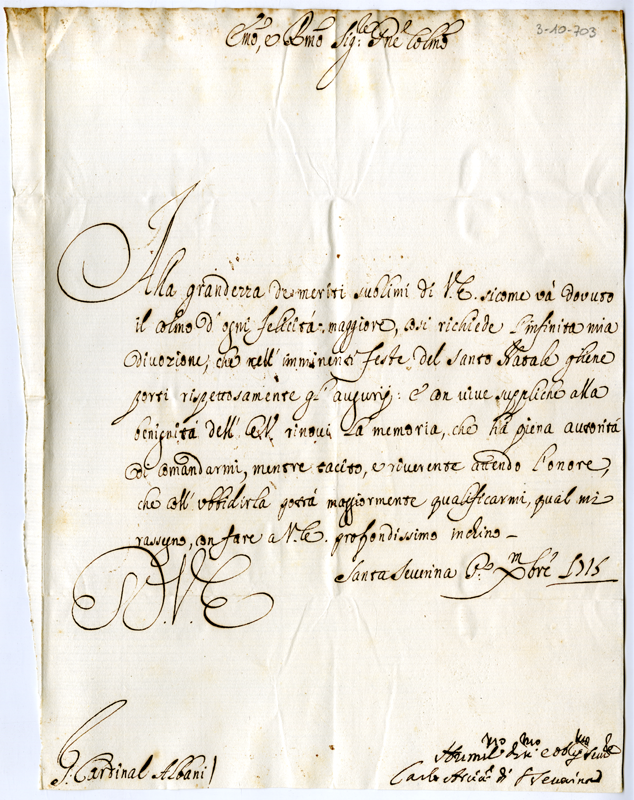 3-10-703
Emo, e Rmo Sig:re Pne Colmo
Alla grandezza de meriti sublimi di V.E. sicome và dovuto
il colmo d'ogni felicità maggiore, così richiede l'infinita mia
divozione, che nell'imminenti feste del santo Natale gliene
porti rispettosamente gl'augurij: e con vive suppliche alla
benignità dell'E.V. rinovi la memoria, che hà piena autorità
di comandarmi, mentre tacito, e riverente attendo l'onore,
che coll'ubbidirla potrà maggiormente qualificarmi, qual mi
rassegno, con fare a V.E. profondissimo inchino
Santa Severina Pmo Xbre 1715
D.V.E.
S. Cardinal Albani
Humilmo devmo e oblig
Carlo Arciv. di S. Severina